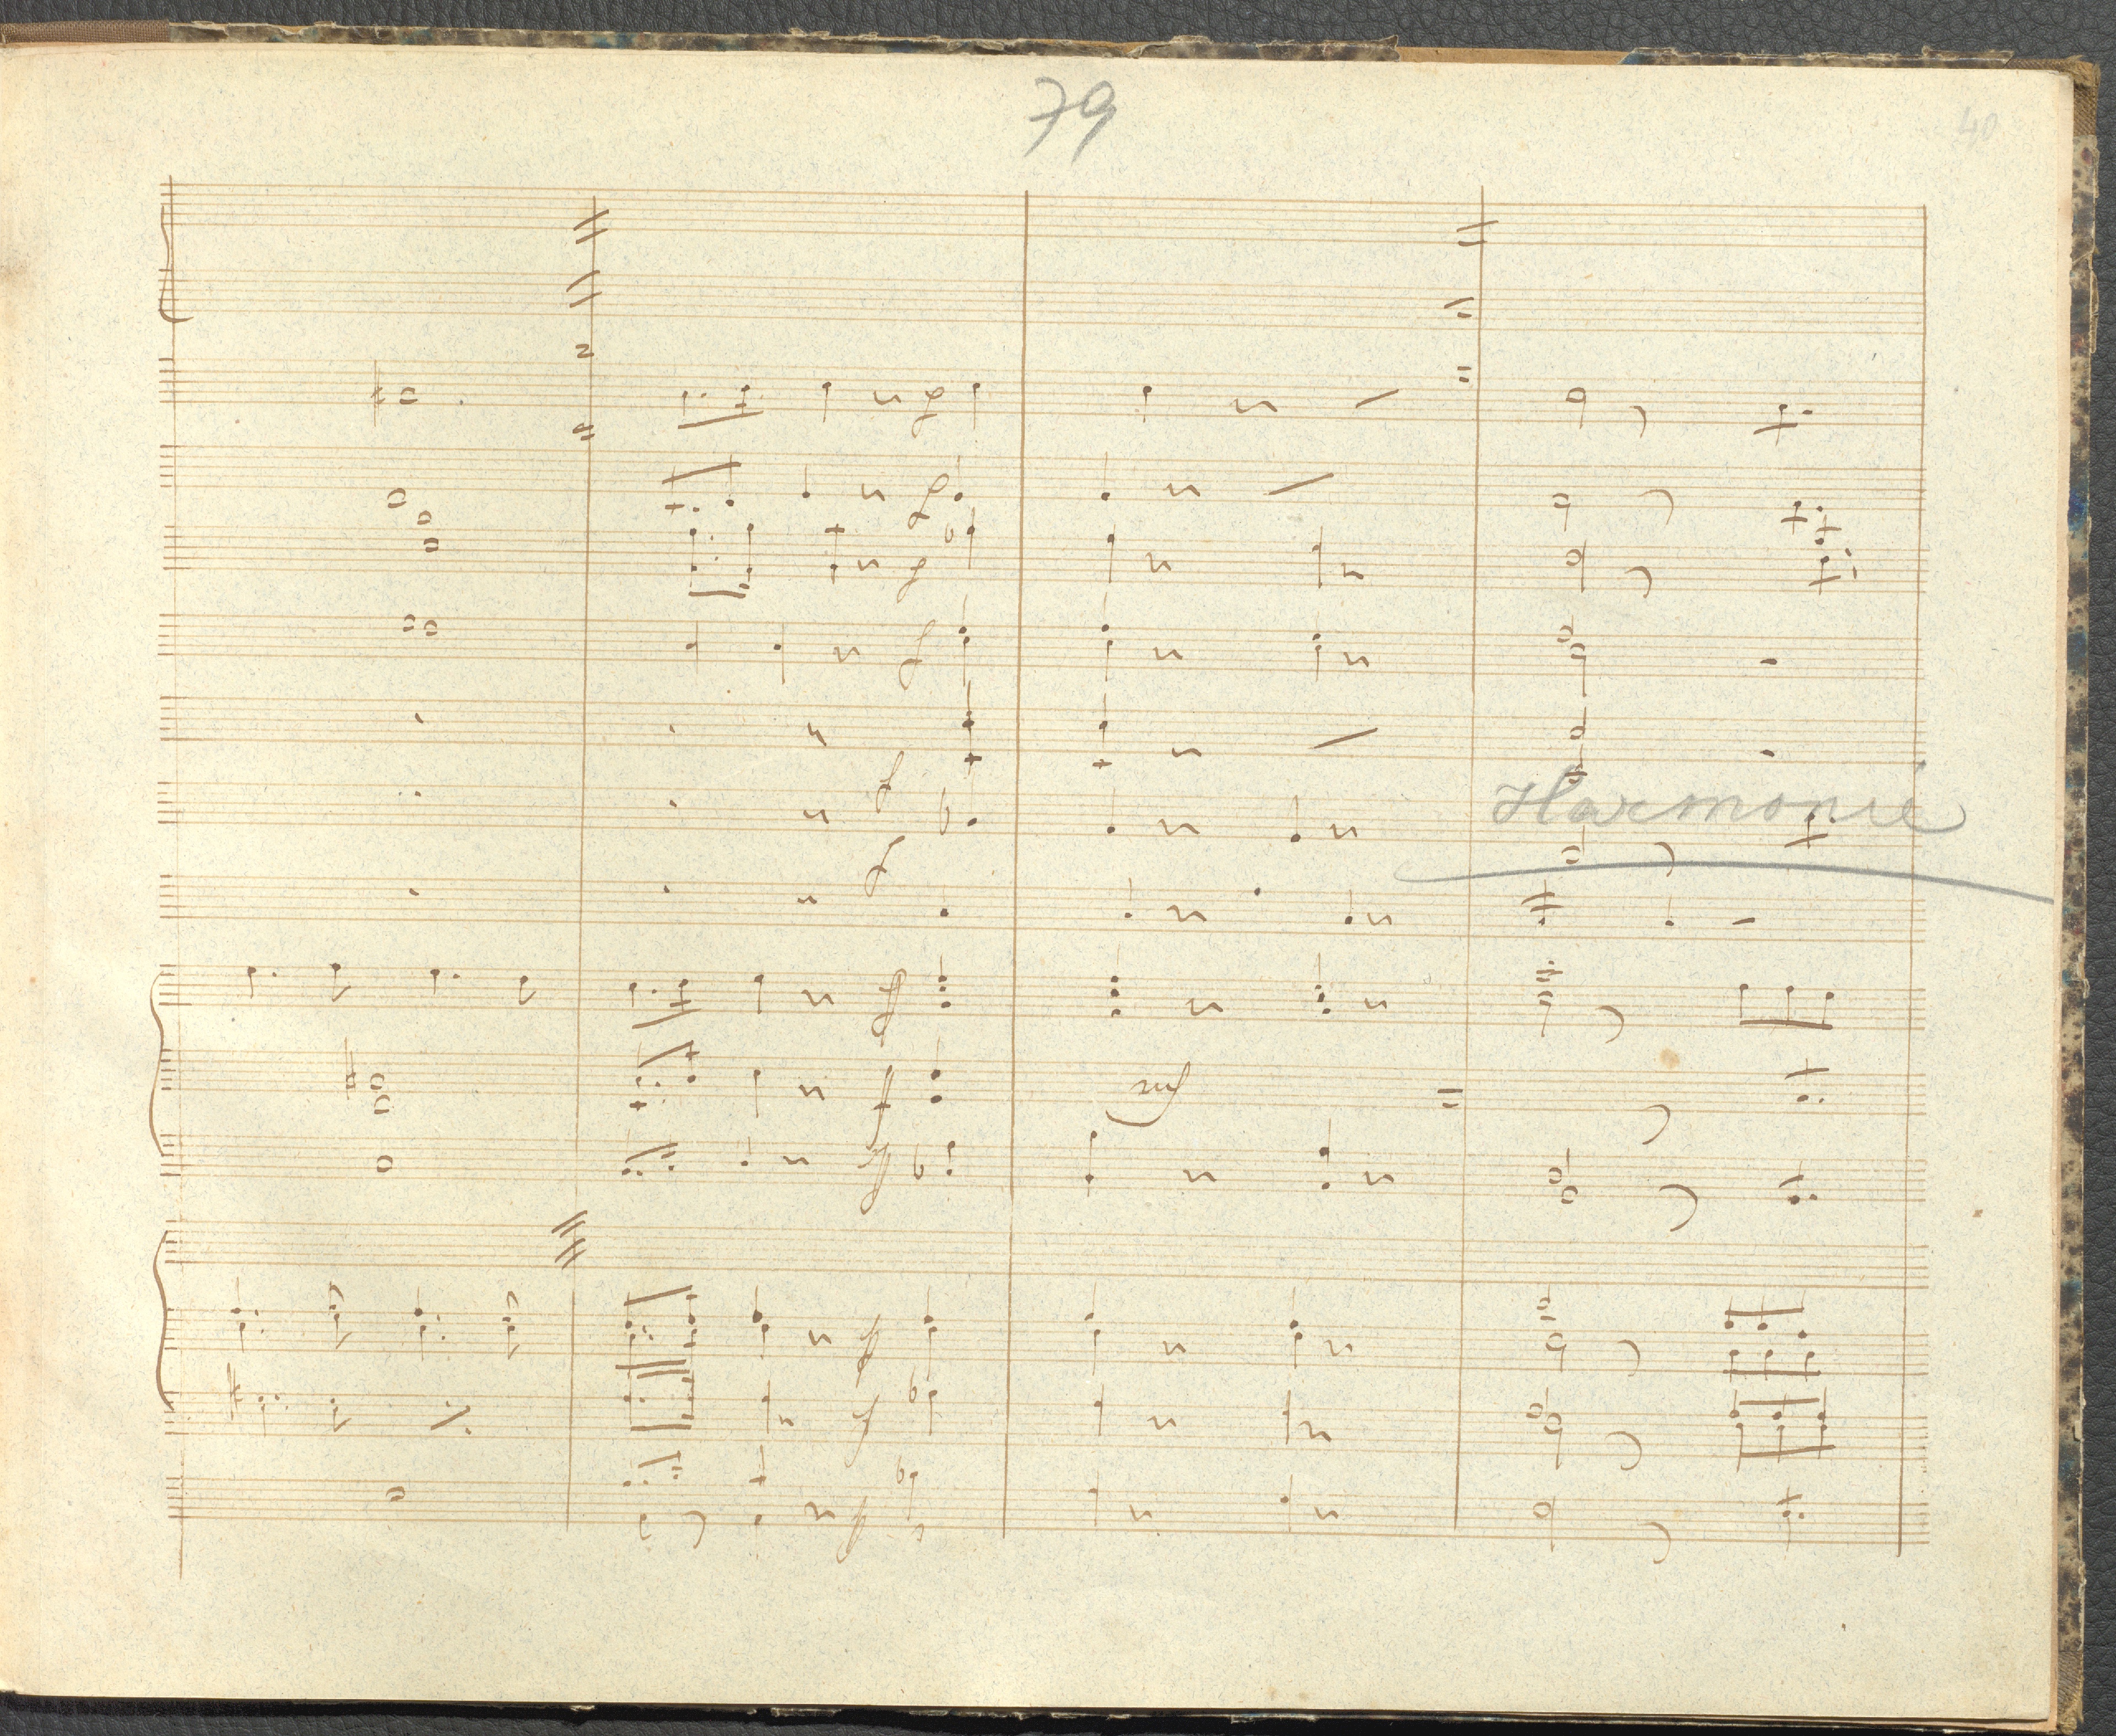 79
40
Harmonie